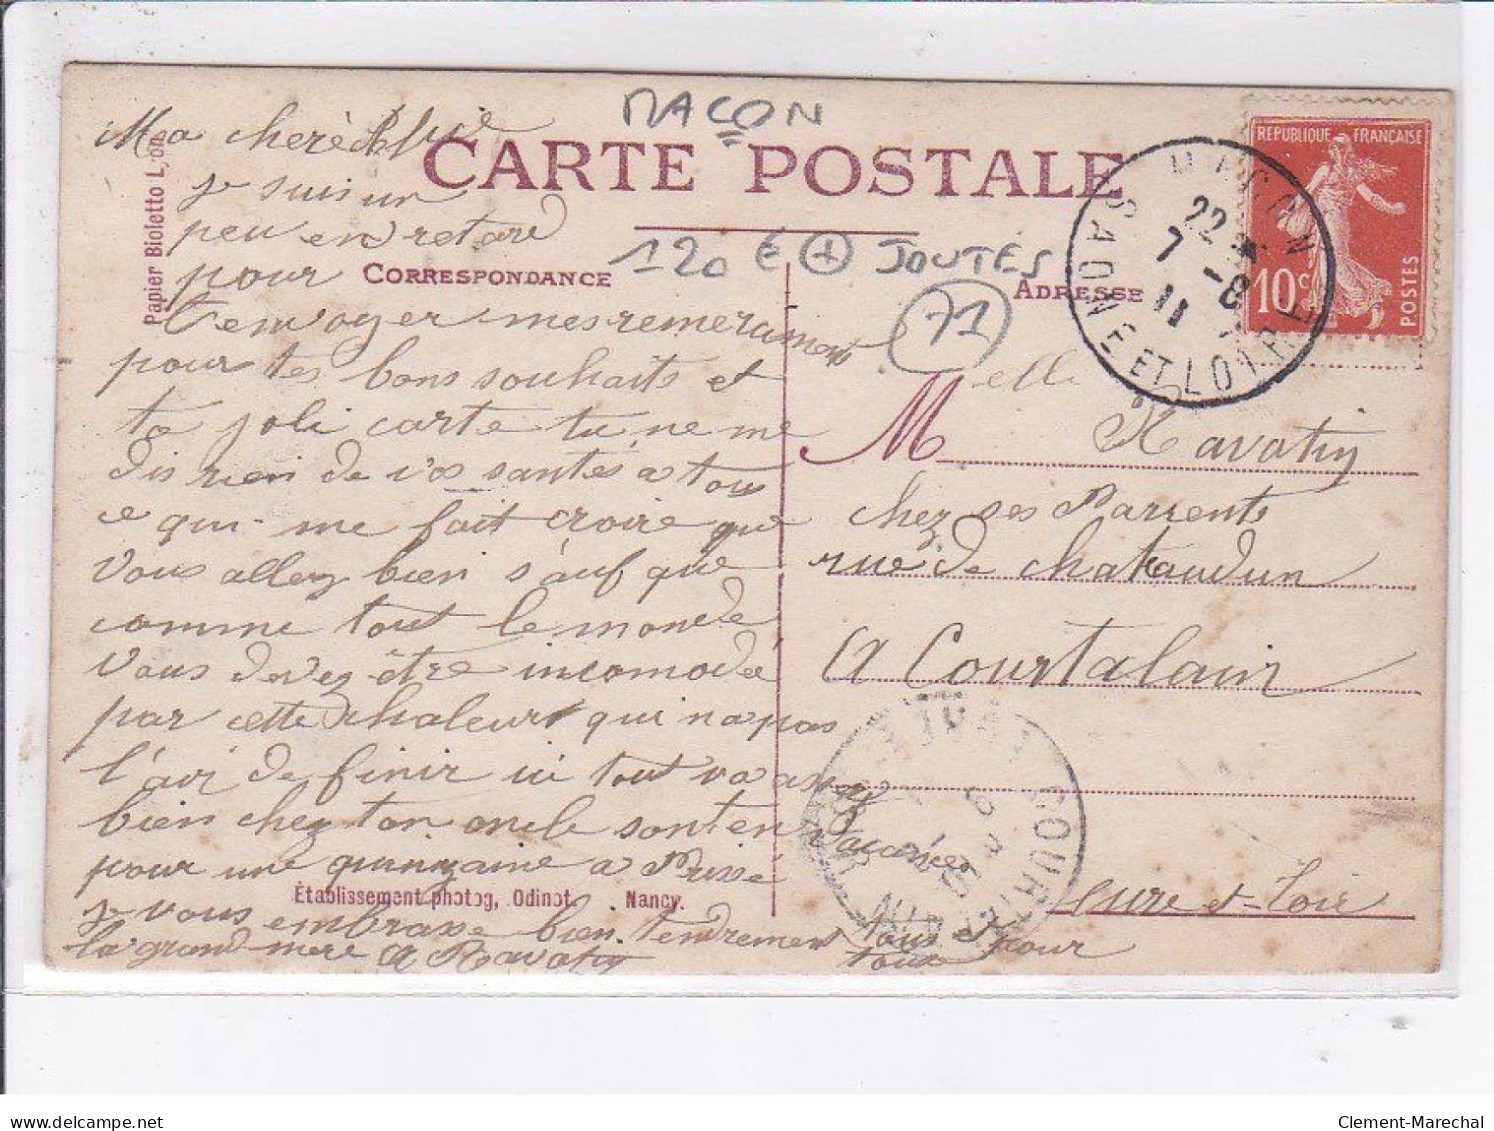 MACON
CARTE POSTALE
120 € + JOUTES
71
CORRESPONDANCE
ADRESSE
Papier Bioletto Lyon
REPUBLIQUE FRANÇAISE
10c
POSTES
MACON
22
7 -8
11
SAONE ET LOIRE
Ma chere
je suis un
peu en retard
pour
t'envoyer mes remerciments
pour tes bons souhaits et
ta joli carte tu ne me
dis rien de vos santés a tous
ce qui me fait croire que
vous allez bien s'auf que
comme tout le monde
vous devez être incomodé
par cette chaleur qui n'a pas
l'air de finir ici tout va assez
bien chez ton oncle sont en vacances
pour une quinzaine a Prissé
je vous embrasse bien tendrement tous et pour
la grand mere A Ravatin tous
Melle
Ravatin
chez ses Parrents
rue de chataudun
A Courtalain
eure et Loir
COURTALAIN
Établissement photog, Odinot Nancy.
Clement-Marechal
delcampe.net